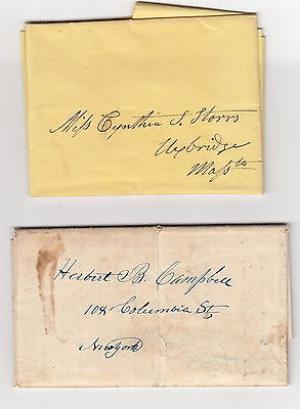 Miss Cynthia S. Storrs
Uxbridge
Masstts
Herbert B. Campbell
108 Columbia St,
New York